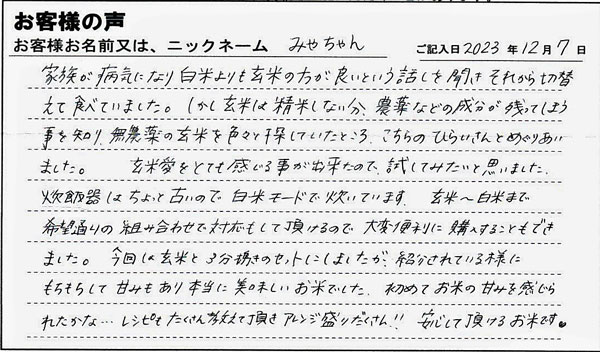 お客様の声
お客様お名前又は、ニックネーム みやちゃん ご記入日 2023 年 12 月 7 日
家族が病気になり白米よりも玄米の方が良いという話しを聞き それから切替
えて食べていました。しかし玄米は精米しない分、農薬などの成分が残ってしまう
事を知り 無農薬の玄米を色々と探していたところ、こちらのひらいさんとめぐりあい
ました。 玄米愛をとても感じる事が出来たので、試してみたいと思いました。
炊飯器はちょっと古いので 白米モードで炊いています。 玄米〜白米まで
希望通りの組み合わせで対応もして頂けるので 大変便利に購入することもでき
ました。 今回は玄米と3分搗きのセットにしましたが、紹介されている様に
もちもちして甘みもあり本当に美味しいお米でした。初めてお米の甘みを感じら
れたかな… レシピもたくさん教えて頂き アレンジ盛りだくさん!! 安心して頂けるお米です♥